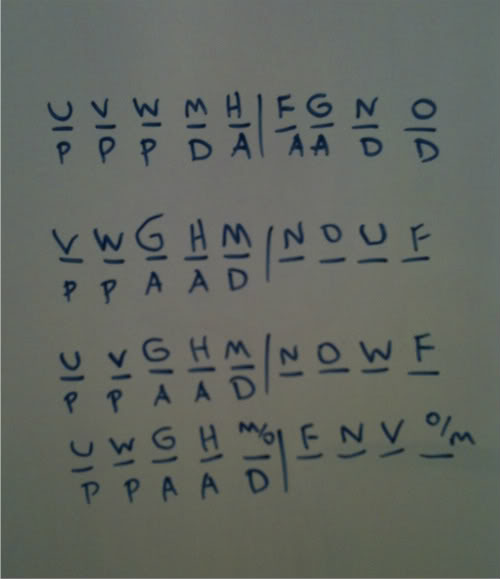 U V W M H | F G N O
P P P D A A A D D
V W G H M | N O U F
P P A A D
U V G H M | N O W F
P P A A D
U W G H M/O | F N V O/M
P P A A D